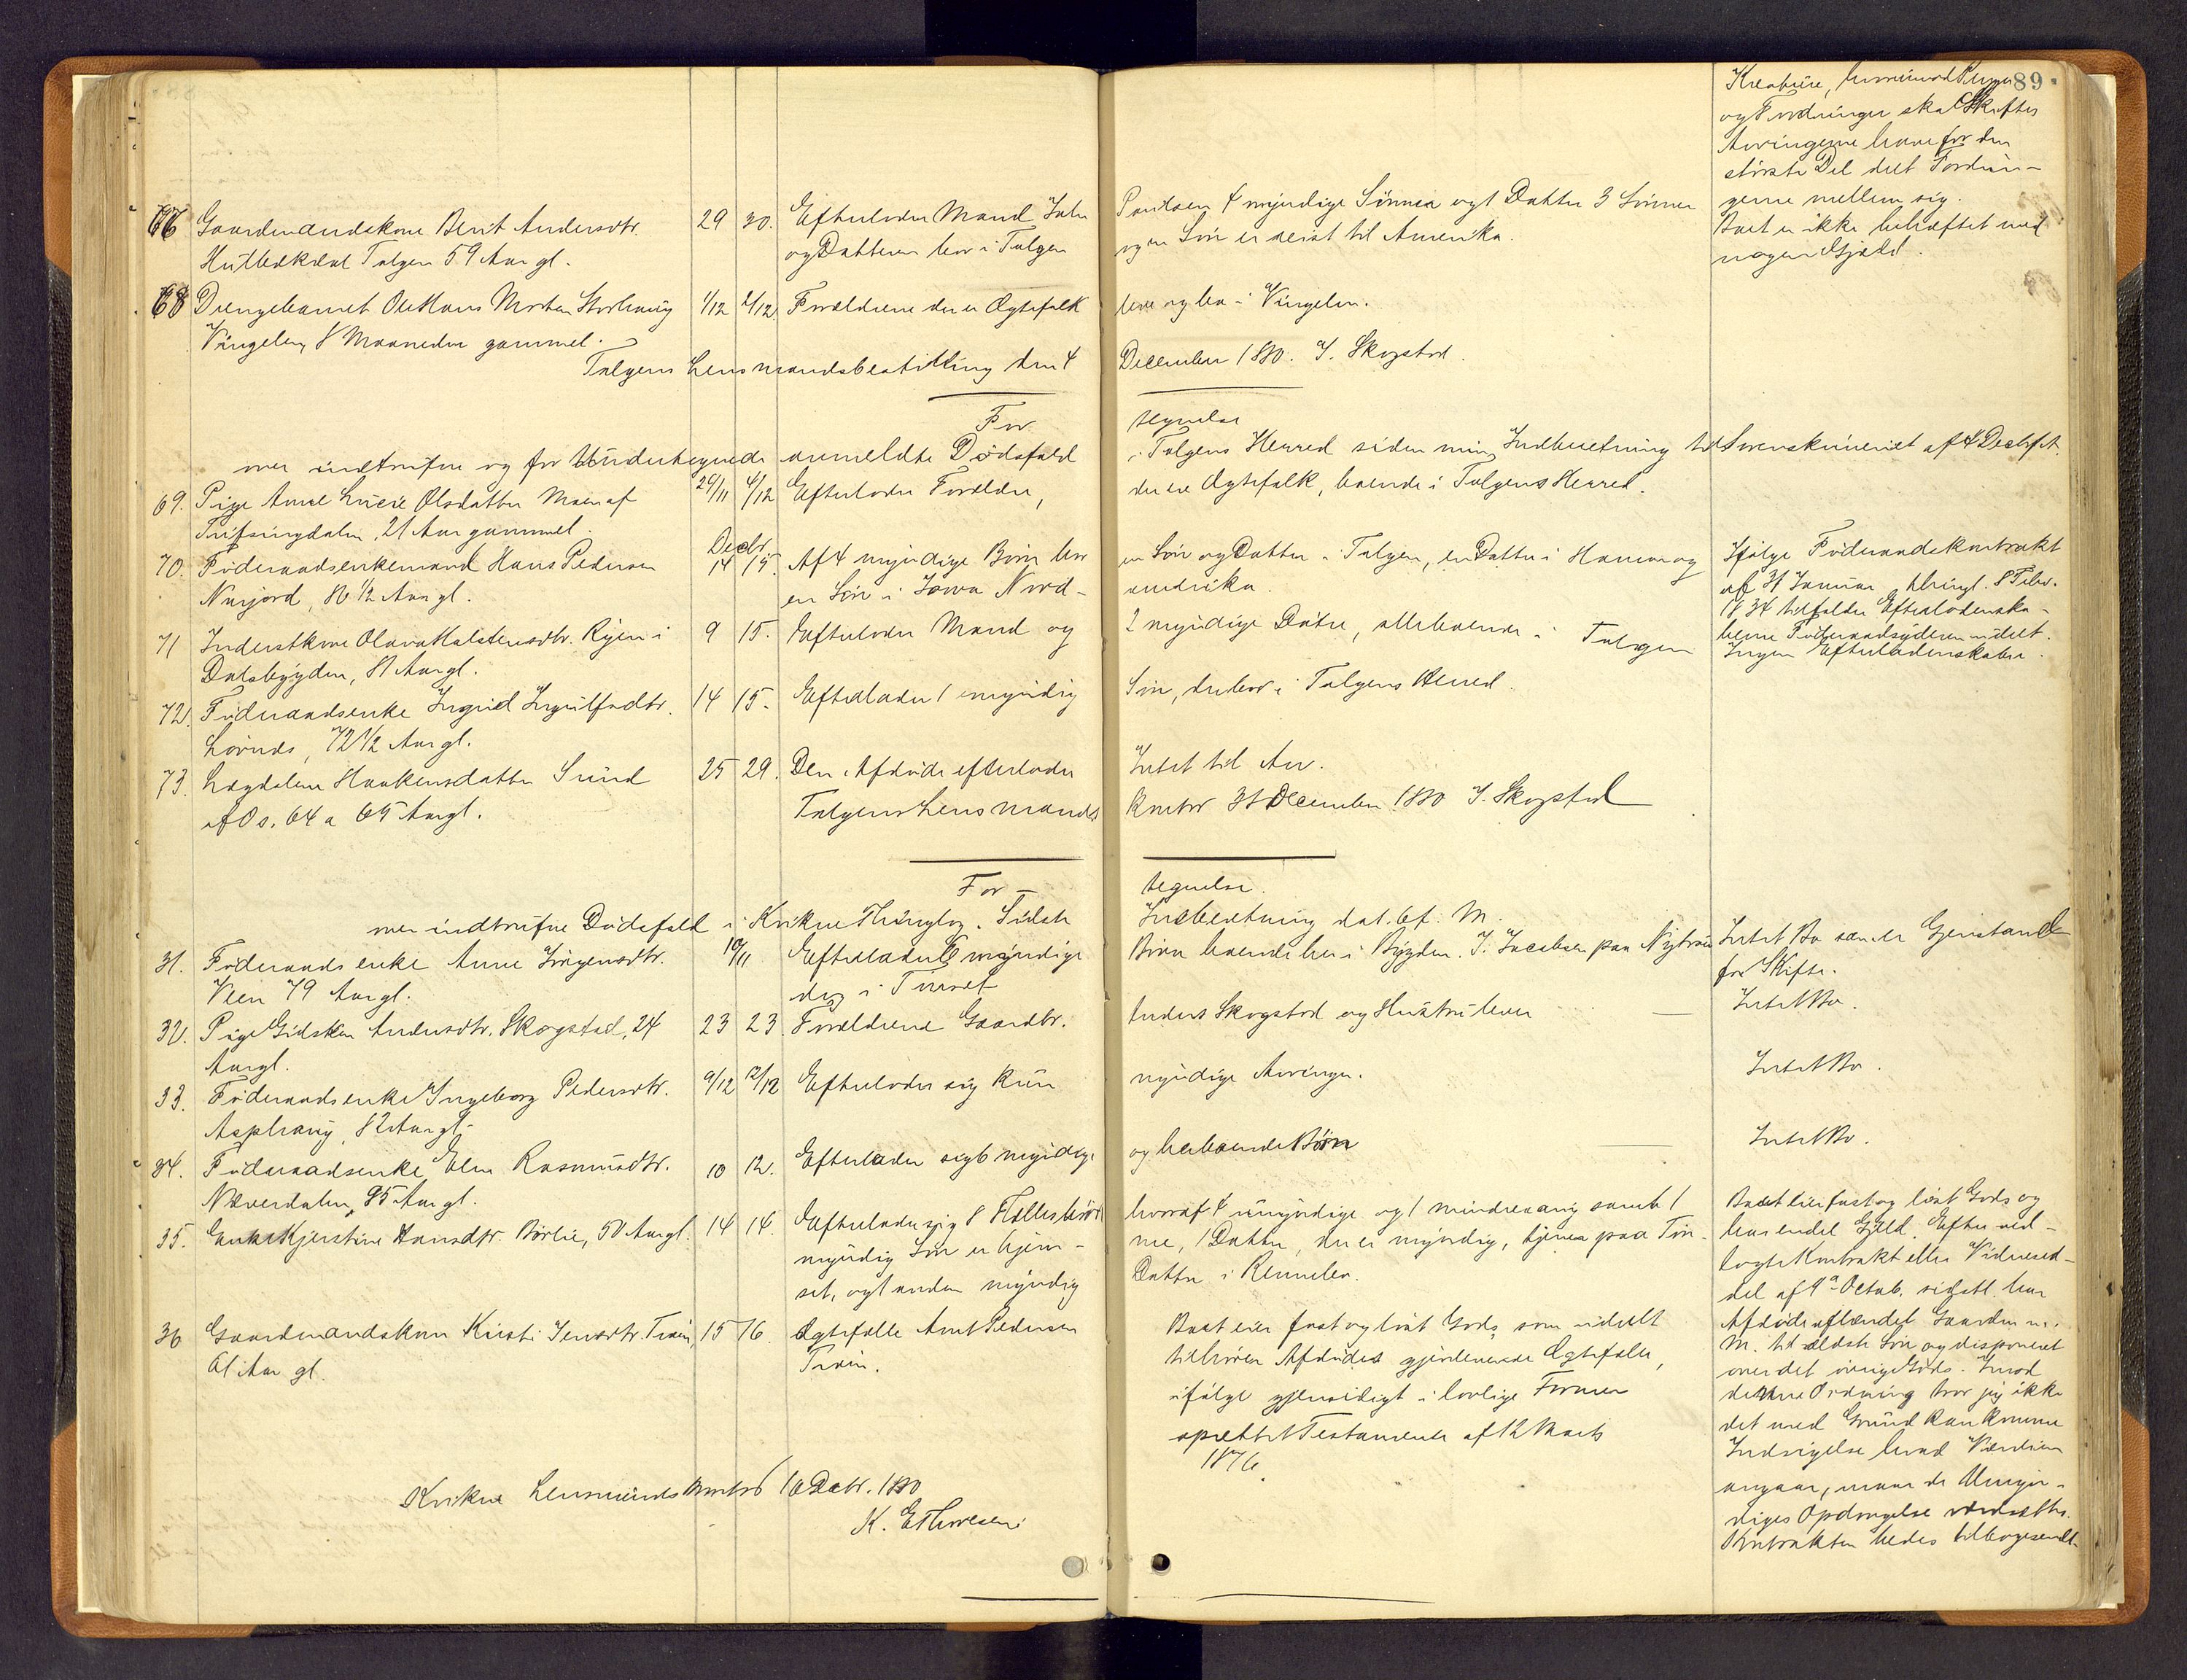 89
Kreature, hvorimod Penge
og Fordringer skal Skiftes
Arvingerne have for den
største Del delt Fordrin-
gerne mellem sig.
Boet er ikke behæftet med
nogen Gjæld.
66 Gaardmandskone Berit Andersdtr. 29 30. Efterlader Mand John Paulsen 4 myndige Sønner og 1 Datter 3 Sønner
Tolgen 59 Aar gl. og Datteren bor i Tolgen og en Søn er reist til Amerika.
68 Drengebarnet Ole Hans Morten Storhaug 1/12 2/12 Forældrene der er Ægtefolk leve og bo i Vingelen.
Vingelen, 8 Maaneder gammel.
Tolgens Lensmandsbestilling den 4 December 1880. J. Skogstad.
Fortegnelse
over indtrufne og for Undertegnede anmeldte Dødsfald i Tolgens Herred siden min Indberetning til Sorenskriveriet af 4 Decbr
69. Pige Anne Lucie Olsdatter Moen af 29/11 4/12 Efterlader Forældre, der ere Ægtefolk, boende i Tolgens Herred.
21 Aar gammel.
Decbr
70. Føderaadsenkemand Hans Pedersen 14 15. Af 4 myndige Børn bor en Søn og Datter i Tolgen, en Datter i Hamar og
Nærjord, 86 1/2 Aar gl. en Søn i Iowa Nord-amerika.
Ifølge Føderaadskontrakt
af 31 Januar thingl. 8 Febr.
1834 tilfalder Efterladenska-
berne Føderaadsyderen udelt.
71 Inderstkone Olava Halstensdtr. Ryen i 9 15. Efterlader Mand og 2 myndige Døtre, alle boende i Tolgen
Ingen Efterladenskaber.
Dalsbygden, 81 Aar gl.
72. Føderaadsenke Ingrid Ingulfsdtr. 14 15. Efterlader 1 myndig Søn, der bor i Tolgens Herred.
72 1/2 Aar gl.
73. Haakensdatter Sund 25 29. Den Afdøde efterlader Intet til Arv.
af Os. 64 a 65 Aar gl.
Tolgens Lensmands Kontor 31 December 1880 J. Skogstad
For-tegnelse.
over indtrufne Dødsfald i Kvikne Thinglag. Sidste Indberetning dat. 6 f. M.
31. Føderaadsenke Anne Jørgensdtr. 10/11 Efterlader 6 myndige Børn boende her i Bygden. J. Jacobsen paa
Intet Bo som er Gjenstand
for Skifte.
Veen 79 Aar gl. i Tønset
32. Pige Gidsken Andersdtr. Skogstad, 24 23 23 Forældrene Gaardbr. Anders Skogstad og Hustru lever — Intet Bo.
Aar gl.
33. Føderaadsenke Ingeborg Pedersdtr. 9/12 12/12 Efterlader sig kun myndige Arvinger. Intet Bo.
Asphaug, 82 Aar gl.
34. Føderaadsenke Elen Rasmusdtr. 10 12. Efterlader sig 6 myndige og herboende Børn — Intet Bo.
Næverdalen, 85 Aar gl.
35. Enke Kjerstine Hansdtr. Børlie, 50 Aar gl. 14 14. Efterlader sig 8 Fællesbørn hvoraf 4 umyndige og 1 mindreaarig samt 1
myndig Søn er hjem-me, 1 Datter, der er myndig, tjener paa Tøn-
set, og 1 anden myndig Datter i Rennebu.
Boet eier fast og løst Gods og
har endel Gjeld. Efter ved-
lagte Kontrakt eller Vidnesed-
del af 9de Octob. sidstl. har
Afdøde afhændet Gaarden m.
M. til ældste Søn og disponeret
over det øvrige Gods. Imod
denne Ordning tror jeg ikke
det med Grund kan komme
Indsigelse hvad Værdien
angaar, naar de Umyn-
diges Opdragelse værdsættes.
Kontrakten bedes tilbagesendt.
36 Gaardmandskone Kirsti Jensdtr. Trøen, 15 16. Ægtefælle Arnt Pedersen Boet eier fast og løst Gods, som udelt
61 Aar gl. Trøen. tilhører Afdødes gjenlevende Ægtefælle,
ifølge gjensidigt i lovlige Former
oprettet Testamente af 12 Marts
1876.
Kvikne Lensmandskontor 16 Decbr. 1880
K. E. Thoresen